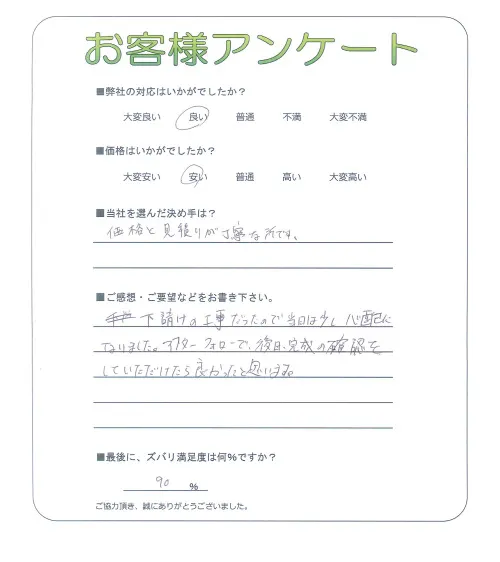 お客様アンケート
■弊社の対応はいかがでしたか？
大変良い 良い 普通 不満 大変不満
■価格はいかがでしたか？
大変安い 安い 普通 高い 大変高い
■当社を選んだ決め手は？
価格と見積りが丁寧な所です。
■ご感想・ご要望などをお書き下さい。
下請けの工事だったので当日は少し心配に
なりました。アフターフォローで、後日、完成の確認を
していただけたら良かったと思います。
■最後に、ズバリ満足度は何%ですか？
90 %
ご協力頂き、誠にありがとうございました。